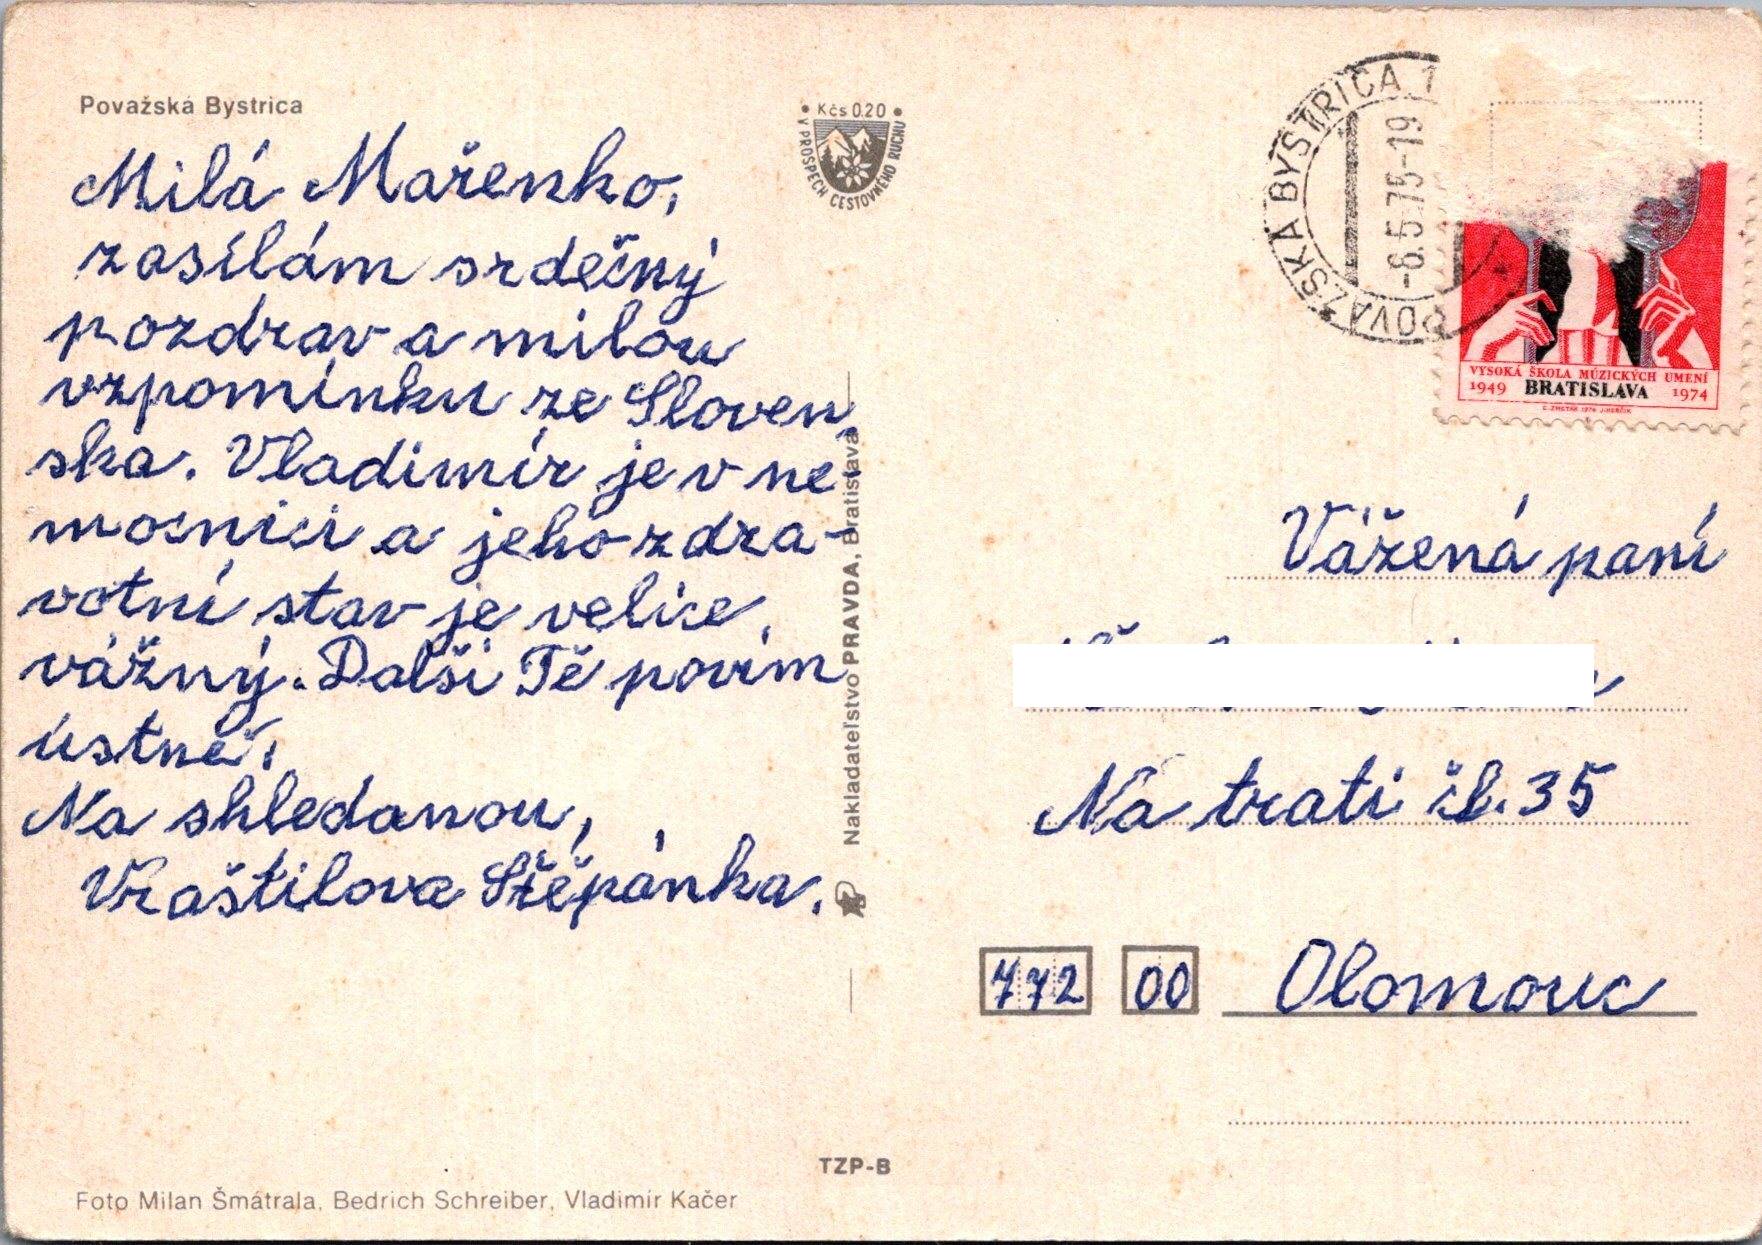 Považská Bystrica
Milá Mařenko,
zasílám srdečný
pozdrav a milou
vzpomínku ze Sloven
ska. Vladimír je v ne-
mocnici a jeho zdra-
votní stav je velice
vážný. Dalši Tě povím
ústně.
Na shledanou,
Vraštilova Štěpánka.
Kčs 0.20
V PROSPECH CESTOVNÉHO RUCHU
Nakladateľstvo PRAVDA, Bratislava
POVAŽSKÁ BYSTRICA 1
-6.5.75-19
VYSOKÁ ŠKOLA MÚZICKÝCH UMENÍ
1949 BRATISLAVA 1974
Vážená paní
Na trati čl. 35
772 00 Olomouc
TZP-B
Foto Milan Šmátrala, Bedrich Schreiber, Vladimír Kačer